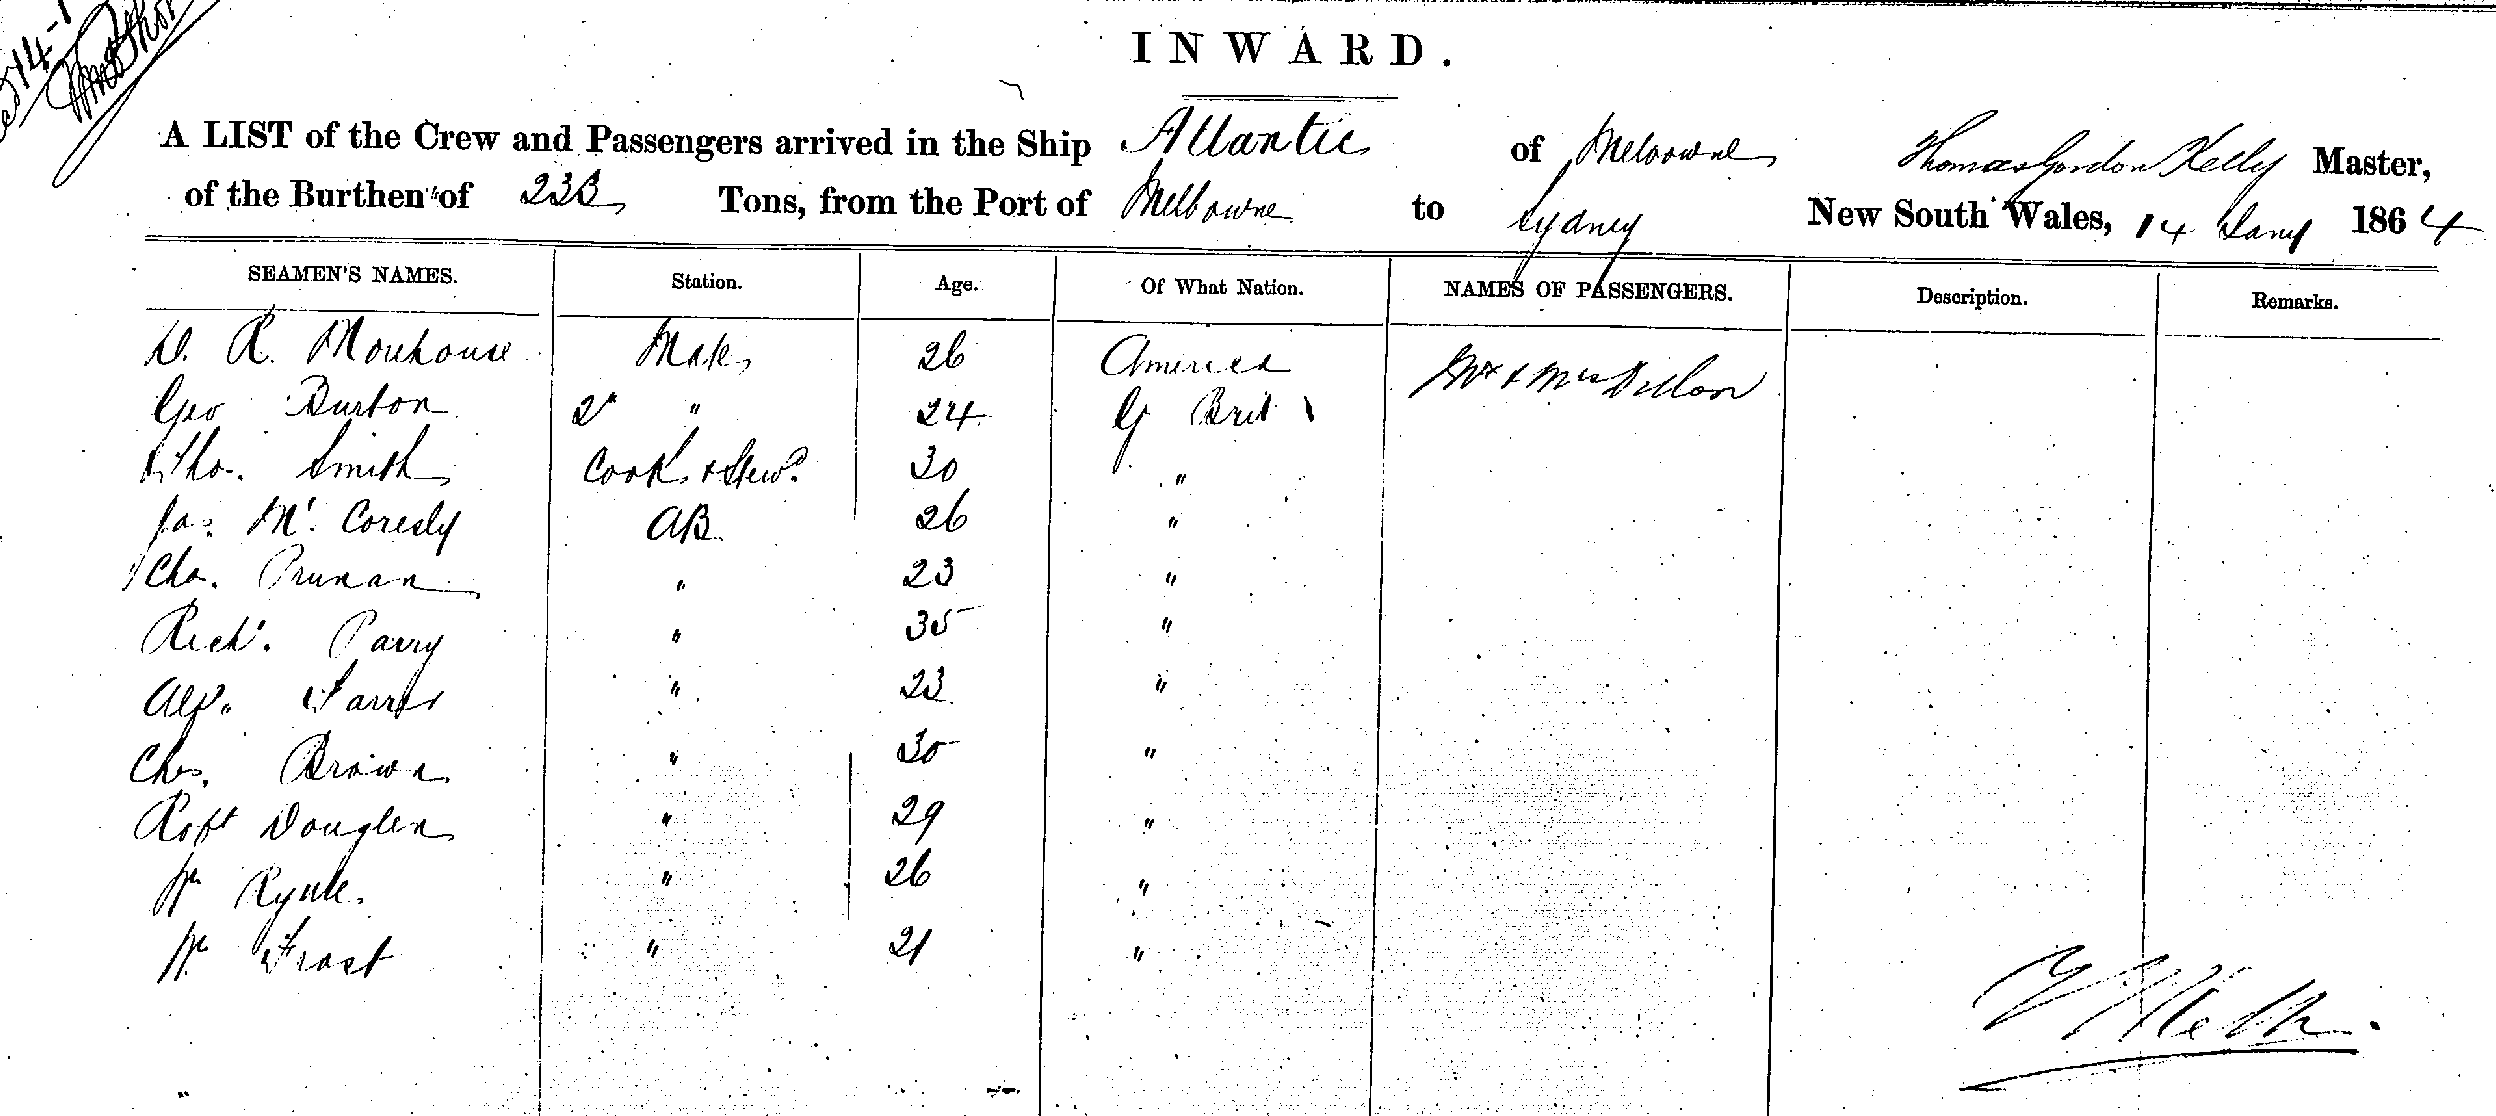 INWARD.
A LIST of the Crew and Passengers arrived in the Ship Atlantic of Melbourne Thomas Gordon Kelly Master,
of the Burthen of 23 Tons, from the Port of Melbourne to Sydney New South Wales, 14 Jany 1864
SEAMEN'S NAMES. Station. Age. Of What Nation. NAMES OF PASSENGERS. Description. Remarks.
D. R. Morehouse Mate 26 America Mr & Mrs Dillon
Geo Burton 2d " 24 G Brit
Tho. Smith Cook & Stewd. 30 "
Jas. Mc. AB 26 "
Cha. " 23 "
Richd. Parry " 35 "
Alex. " 23 "
Chs. Brown " 30 "
Robt Douglas " 29 "
Wm " 26 "
Wm Frost " 21 "
Kelly